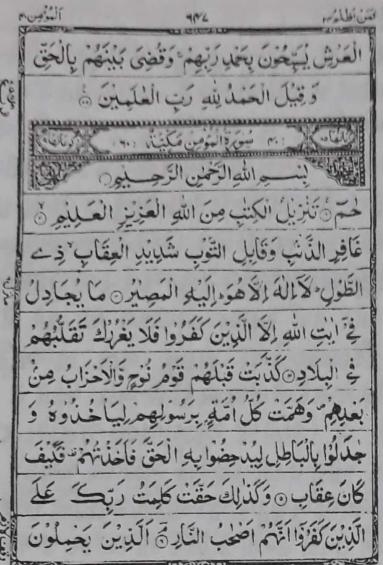 المؤمن ٤٠
٦٤٧
فمن اظلم ٢٤
الْعَرْشِ يُسَبِّحُوْنَ بِحَمْدِ رَبِّهِمْ ۚ وَقُضِىَ بَيْنَهُمْ بِالْحَقِّ
وَقِيْلَ الْحَمْدُ لِلّٰهِ رَبِّ الْعٰلَمِيْنَ
٤٠ سُوْرَةُ الْمُؤْمِنِ مَكِّيَّةٌ ٦٠
بِسْمِ اللّٰهِ الرَّحْمٰنِ الرَّحِيْمِ
حٰمٓ ۚ تَنْزِيْلُ الْكِتٰبِ مِنَ اللّٰهِ الْعَزِيْزِ الْعَلِيْمِ
غَافِرِ الذَّنْبِ وَقَابِلِ التَّوْبِ شَدِيْدِ الْعِقَابِ ذِى
الطَّوْلِ ؕ لَاۤ اِلٰهَ اِلَّا هُوَ ؕ اِلَيْهِ الْمَصِيْرُ مَا يُجَادِلُ
فِىْۤ اٰيٰتِ اللّٰهِ اِلَّا الَّذِيْنَ كَفَرُوْا فَلَا يَغْرُرْكَ تَقَلُّبُهُمْ
فِى الْبِلَادِ كَذَّبَتْ قَبْلَهُمْ قَوْمُ نُوْحٍ وَّالْاَحْزَابُ مِنْ
بَعْدِهِمْ ۪ وَهَمَّتْ كُلُّ اُمَّةٍۭ بِرَسُوْلِهِمْ لِيَاْخُذُوْهُ وَ
جٰدَلُوْا بِالْبَاطِلِ لِيُدْحِضُوْا بِهِ الْحَقَّ فَاَخَذْتُهُمْ ۫ فَكَيْفَ
كَانَ عِقَابِ وَكَذٰلِكَ حَقَّتْ كَلِمَتُ رَبِّكَ عَلَى
الَّذِيْنَ كَفَرُوْۤا اَنَّهُمْ اَصْحٰبُ النَّارِ اَلَّذِيْنَ يَحْمِلُوْنَ